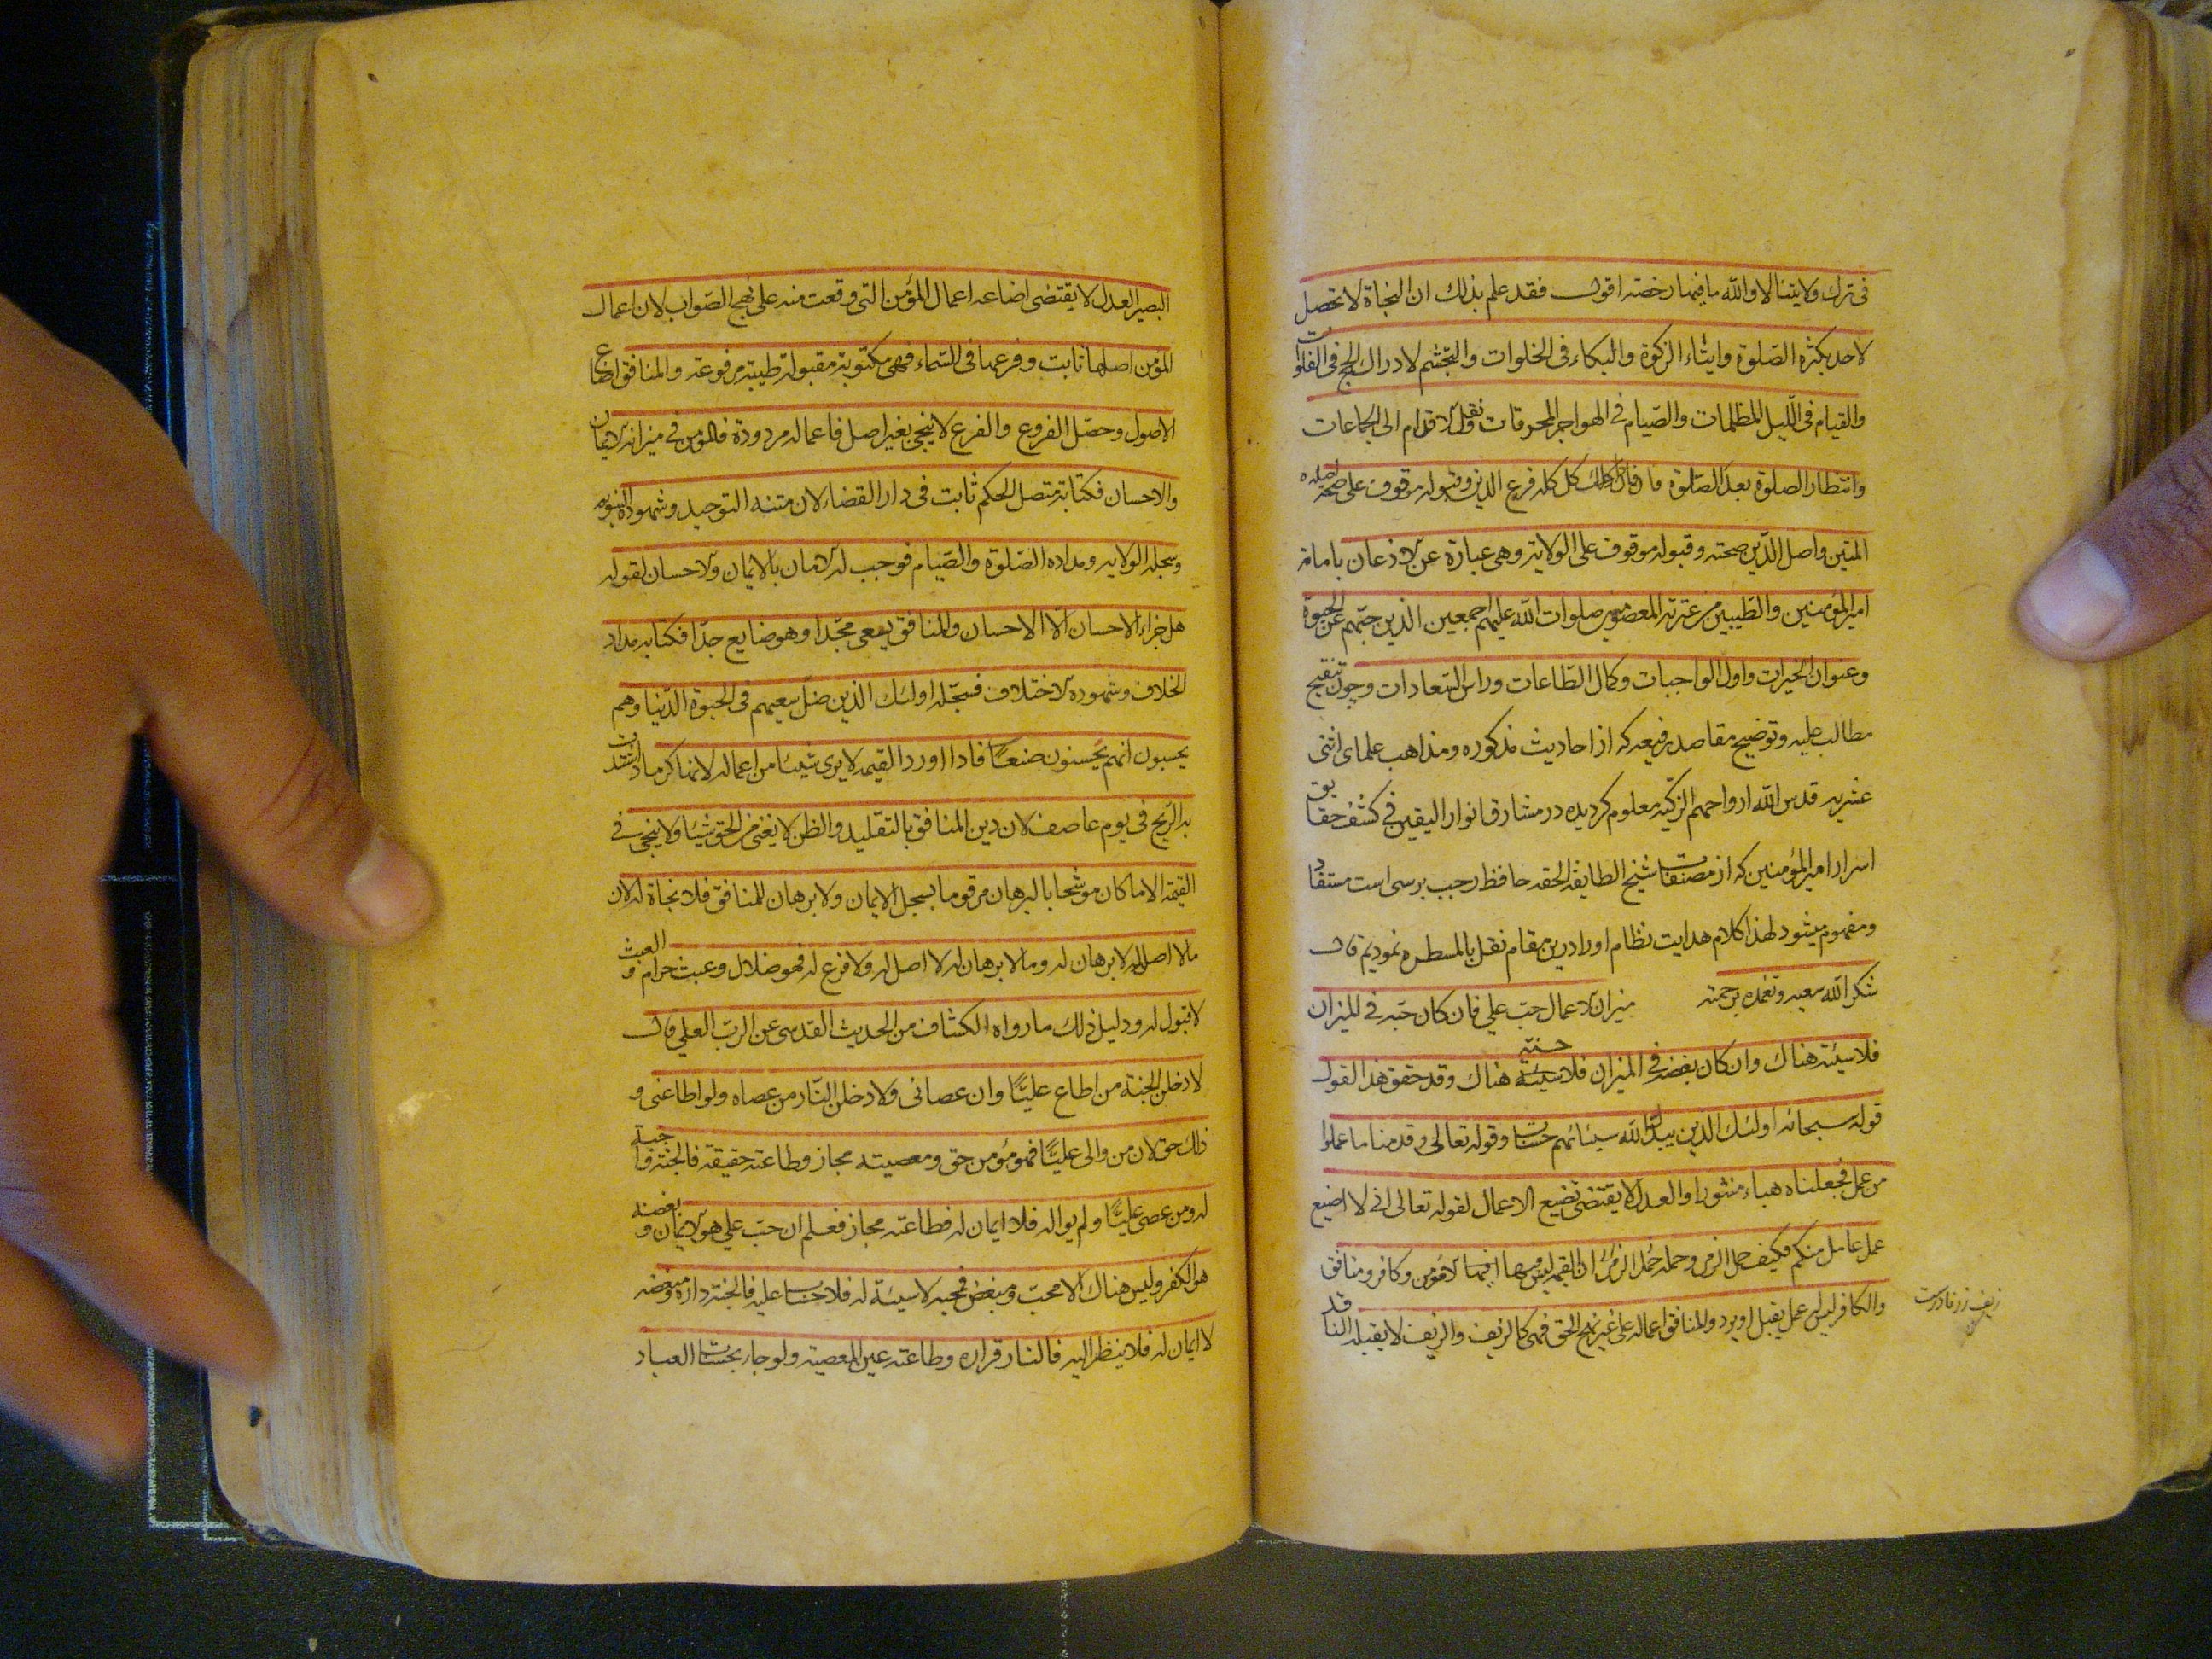 فى ترك ولايتنا لا والله ما فيهما رخصه اقول فقد علم بذلك ان النجاة لا تحصل
لاحد بكثرة الصلوة وايتاء الزكوة والبكاء فى الخلوات والتجشم لادراك الحج فى الفلوات
والقيام فى الليل المظلمات والصيام فى الهواجر المحرقات ونقل الاقدام الى الجماعات
وانتظار الصلوة بعد الصلوة فان ذلك كله فرع الدين وقبوله موقوف على صحة اصله
المتين واصل الدين صحته وقبوله موقوف على الولاية وهى عبارة عن الاذعان بامامة
امير المؤمنين والطيبين من عترته المعصومين صلوات الله عليهم اجمعين الذين حبهم عين الحيوة
وعنوان الخيرات واول الواجبات وكمال الطاعات وراس السعادات وچون تنقيح
مطالب عليه وتوضيح مقاصد رفيعه كه از احاديث مذكوره ومذاهب علماى اثنى
عشريه قدس الله ارواحهم الزكيه معلوم كرديده در مشارق انوار اليقين فى كشف حقايق
اسرار امير المؤمنين كه از مصنفات شيخ الطايفة الحقه حافظ رجب برسى است مستفاد
ومفهوم ميشود لهذا كلام هدايت نظام اورا درين مقام نقل بالمسطره نموديم قال
شكر الله سعيه وتغمده برحمته ميزان الاعمال حب على فان كان حبه فى الميزان
فلا سيئة هناك وان كان بغضه فى الميزان فلا سيئة حسنة هناك وقد حقق هذا القول
قوله سبحانه اولئك الذين يبدل الله سيئاتهم حسنات وقوله تعالى وقدمنا الى ما عملوا
من عمل فجعلناه هباء منثورا والعدل لا يقتضى تضيع الاعمال لقوله تعالى انى لا اضيع
عمل عامل منكم فكيف حمل الرمز القيمة ليس فيها الا مؤمن وكافر ومنافق
والكافر ليس له عمل يقبل او يرد والمنافق اعماله على غير نهج الحق فهى كالزيف والزيف لا يقبله الناقد
زيف زر نادرست
البصير العدل لا يقتضى اضاعه اعمال المؤمن التى وقعت منه على نهج الصواب لان اعمال
المؤمن اصلها ثابت وفرعها فى السماء فهى مكتوبة مقبولة طيبة مرفوعة والمنافق اضاع
الاصول وحصل الفروع والفرع لا ينجى بغير اصل فاعماله مردودة فالمؤمن فى ميزانه الايمان
والاحسان فكتابته متصل الحكم ثابت فى دار القضاء لان متنه التوحيد وشهوده النبوه
وسجله الولايه ومداده الصلوة والصيام فوجب له الامان بالايمان والاحسان لقوله
هل جزاء الاحسان الا الاحسان والمنافق يدعى مجدا وهو ضايع جدا فكتابه مداد
الخلاف وشهوده الاختلاف فسجله اولئك الذين ضل سعيهم فى الحيوة الدنيا وهم
يحسبون انهم يحسنون صنعا فاذا اورد القيمه لا يرى شيئا من اعماله لانها كرماد اشتدت
به الريح فى يوم عاصف لان دين المنافق بالتقليد والظن لا يغنى من الحق شيئا ولا ينجى فى
القيمة الا ما كان موشحا بالبرهان مرقوما بسجل الايمان ولا برهان للمنافق فلا نجاة له لان
مالا اصل له لا برهان له وما لا برهان له لا اصل له ولا فرع له فهو ضلال وعبث حرام و العبث
لا قبول له ودليل ذلك ما رواه الكشاف من الحديث القدسى عن الرب العلى قال
لادخلن الجنة من اطاع عليا وان عصانى ولادخلن النار من عصاه ولو اطاعنى و
ذلك حق لان من والى عليا فهو مؤمن حق ومعصيته مجاز وطاعته حقيقة فالجنة واجبة
له ومن عصى عليا ولم يواله فلا ايمان له فطاعته مجاز فعلم ان حب على هو الايمان وبغضه
هو الكفر وليس هناك الا محب ومبغض فمحبه لا سيئة له فلا حساب عليه فالجنة داره ومبغضه
لا ايمان له فلا ينظر اليه فالنار قراره وطاعته عين المعصية ولو جاء بحسنات العباد